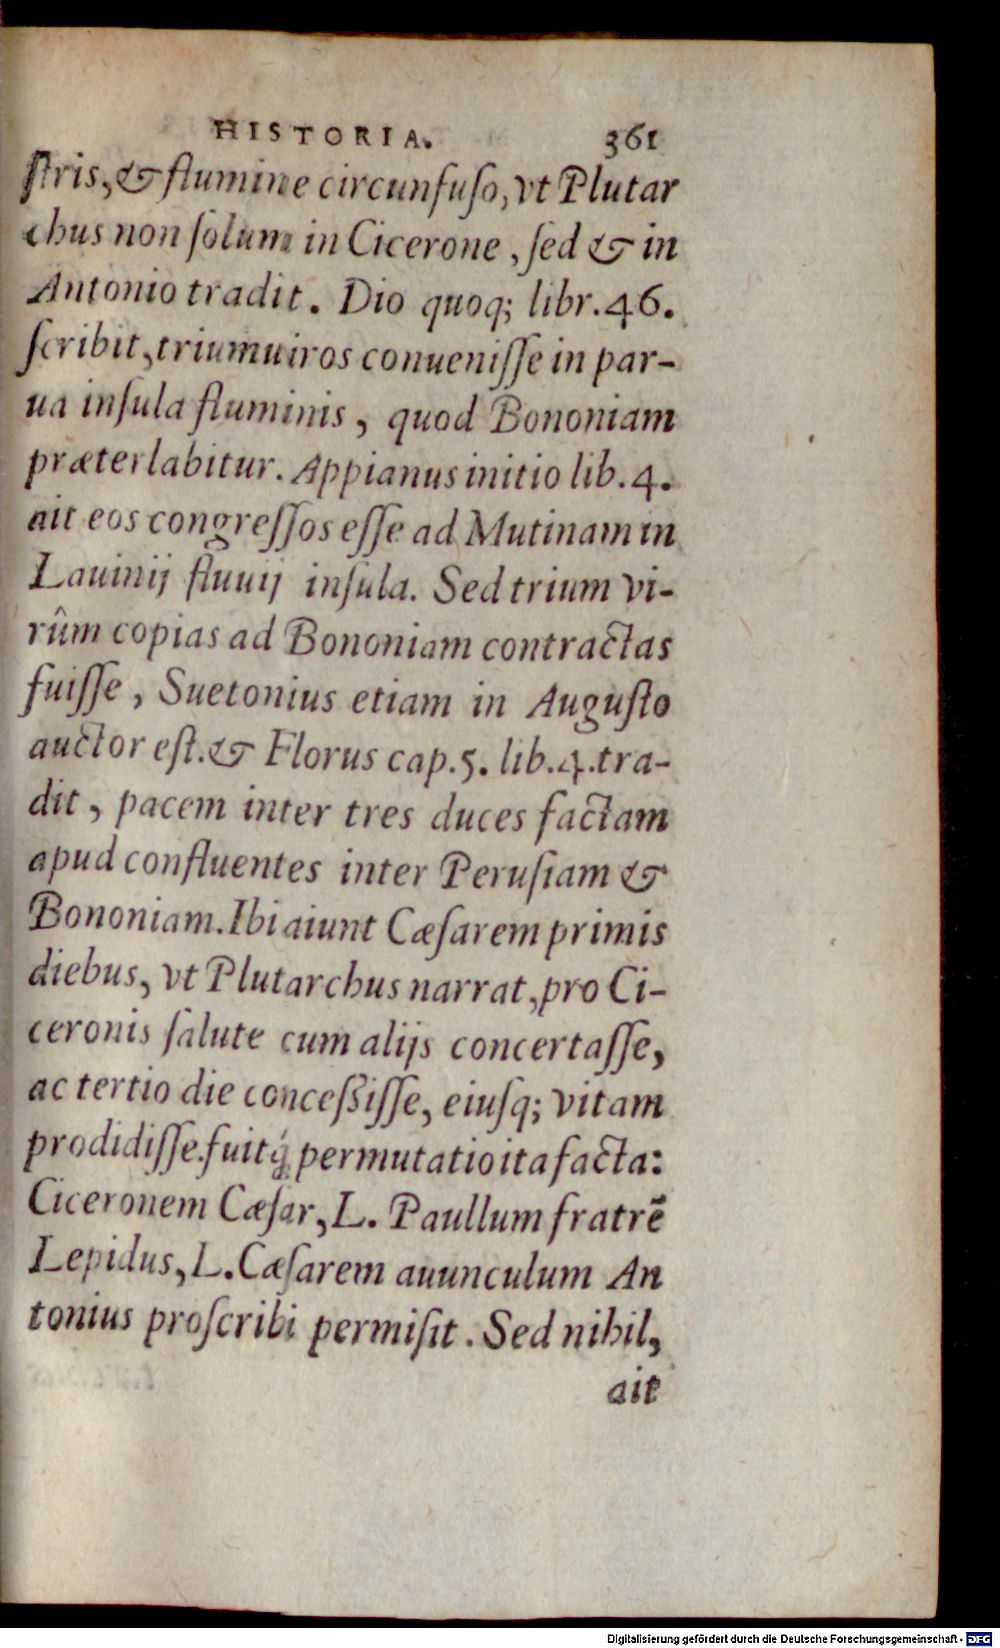 HISTORIA. 361
ſtris, & flumine circunfuſo, vt Plutar
chus non ſolum in Cicerone, ſed & in
Antonio tradit. Dio quoq; libr. 46.
ſcribit, triumuiros conueniſſe in par-
ua inſula fluminis, quod Bononiam
præterlabitur. Appianus initio lib. 4.
ait eos congreſſos eſſe ad Mutinam in
Lauinij fluuij inſula. Sed trium vi-
rûm copias ad Bononiam contractas
fuiſſe, Suetonius etiam in Auguſto
auctor eſt. & Florus cap. 5. lib. 4. tra-
dit, pacem inter tres duces factam
apud confluentes inter Peruſiam &
Bononiam. Ibi aiunt Cæſarem primis
diebus, vt Plutarchus narrat, pro Ci-
ceronis ſalute cum alijs concertaſſe,
ac tertio die conceßiſſe, eiuſq; vitam
prodidiſſe. fuitq́; permutatio ita facta:
Ciceronem Cæſar, L. Paullum fratrē
Lepidus, L. Cæſarem auunculum An
tonius proſcribi permiſit. Sed nihil,
ait
Digitalisierung gefördert durch die Deutsche Forschungsgemeinschaft - DFG